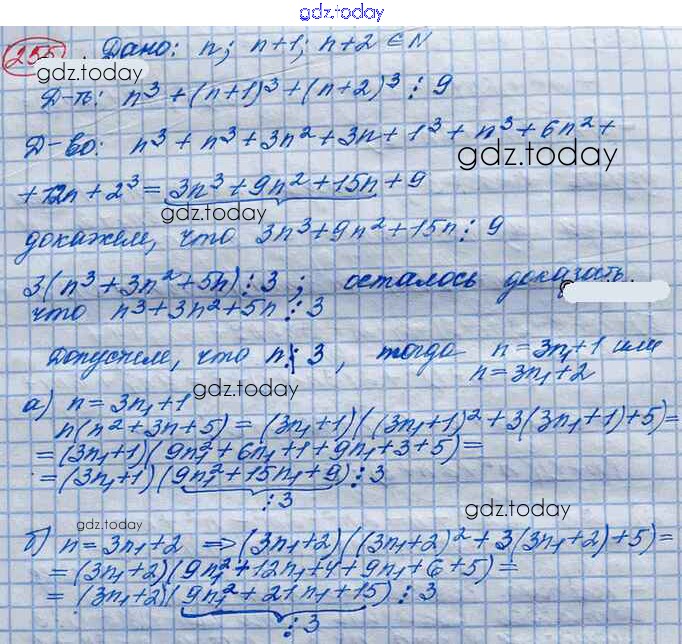 gdz.today
255. Дано: n; n+1; n+2 ∈ N
gdz.today
Д-ть: n³ + (n+1)³ + (n+2)³ ⋮ 9
Д-во: n³ + n³ + 3n² + 3n + 1³ + n³ + 6n² +
gdz.today
+ 12n + 2³ = 3n³ + 9n² + 15n + 9
gdz.today
докажем, что 3n³ + 9n² + 15n ⋮ 9
3(n³ + 3n² + 5n) ⋮ 3 ; осталось доказать,
что n³ + 3n² + 5n ⋮ 3
Допустим, что n ⋮̸ 3, тогда n = 3n₁ + 1 или
n = 3n₁ + 2
gdz.today
а) n = 3n₁ + 1
n(n² + 3n + 5) = (3n₁ + 1)((3n₁ + 1)² + 3(3n₁ + 1) + 5) =
= (3n₁ + 1)(9n₁² + 6n₁ + 1 + 9n₁ + 3 + 5) =
= (3n₁ + 1)(9n₁² + 15n₁ + 9) ⋮ 3
⋮ 3
gdz.today
gdz.today
б) n = 3n₁ + 2 ⇒ (3n₁ + 2)((3n₁ + 2)² + 3(3n₁ + 2) + 5) =
= (3n₁ + 2)(9n₁² + 12n₁ + 4 + 9n₁ + 6 + 5) =
= (3n₁ + 2)(9n₁² + 21n₁ + 15) ⋮ 3
⋮ 3